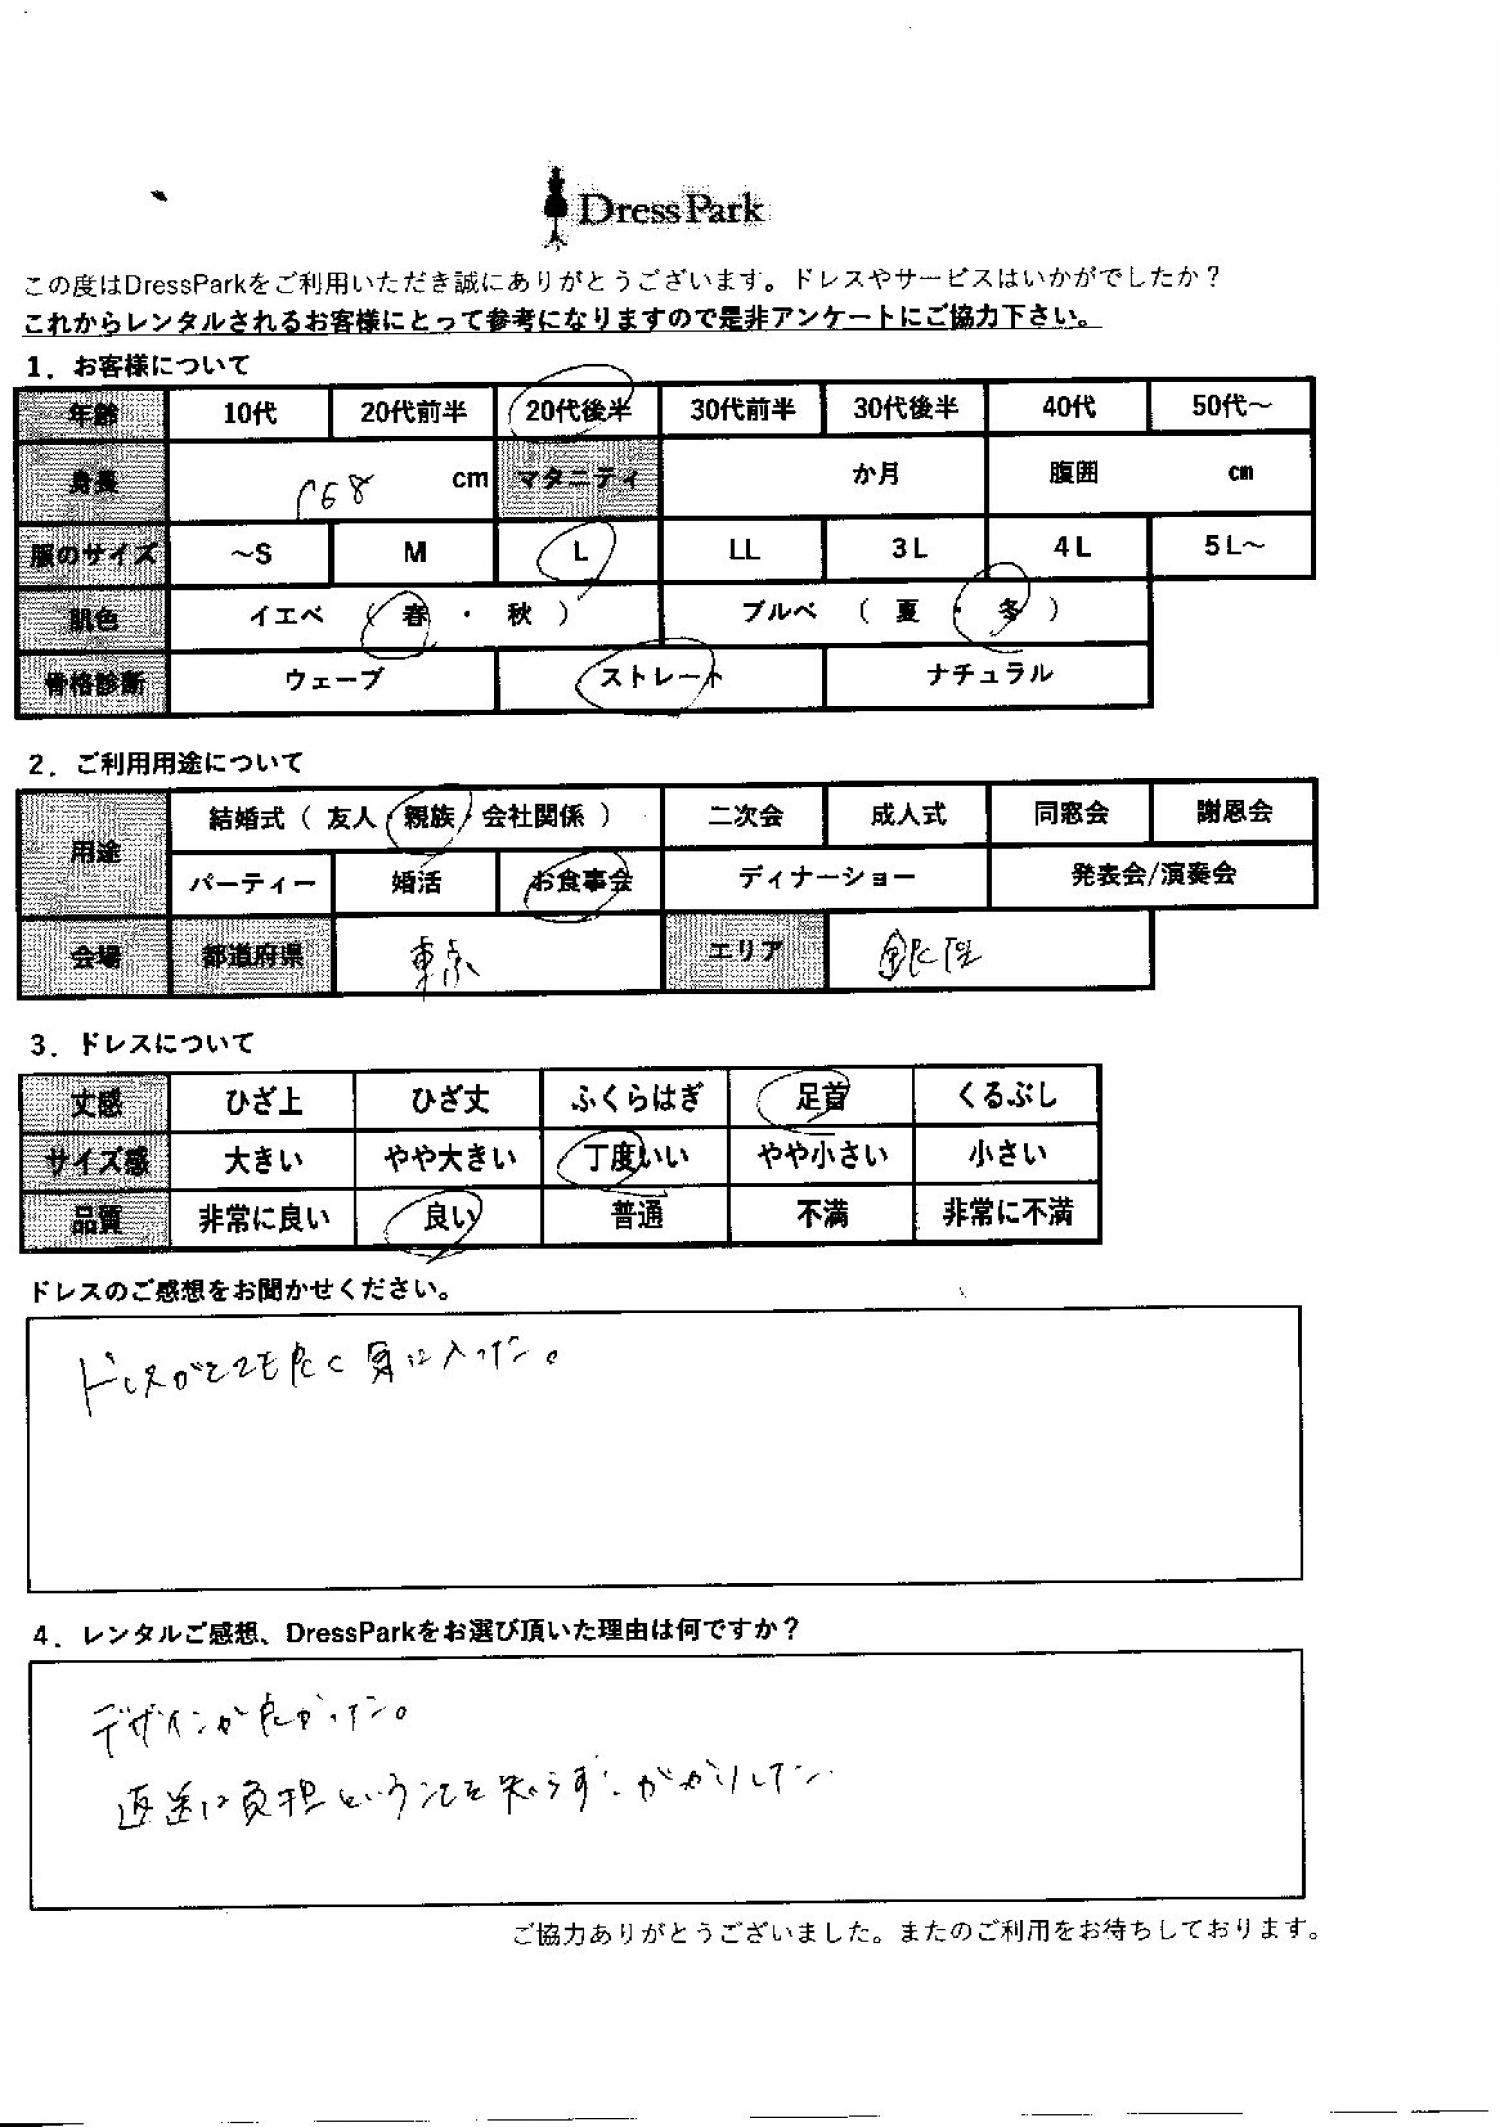 DressPark
この度はDressParkをご利用いただき誠にありがとうございます。ドレスやサービスはいかがでしたか？
これからレンタルされるお客様にとって参考になりますので是非アンケートにご協力下さい。
1．お客様について
年齢 10代 20代前半 20代後半 30代前半 30代後半 40代 50代～
身長 168 cm マタニティ か月 腹囲 cm
服のサイズ ～S M L LL 3L 4L 5L～
肌色 イエベ （ 春 ・ 秋 ） ブルベ （ 夏 ・ 冬 ）
骨格診断 ウェーブ ストレート ナチュラル
2．ご利用用途について
用途 結婚式（ 友人・親族・会社関係 ） 二次会 成人式 同窓会 謝恩会
パーティー 婚活 お食事会 ディナーショー 発表会/演奏会
会場 都道府県 東京 エリア 銀座
3．ドレスについて
丈感 ひざ上 ひざ丈 ふくらはぎ 足首 くるぶし
サイズ感 大きい やや大きい 丁度いい やや小さい 小さい
品質 非常に良い 良い 普通 不満 非常に不満
ドレスのご感想をお聞かせください。
ドレスがとても良く気に入った。
4．レンタルご感想、DressParkをお選び頂いた理由は何ですか？
デザインが良かった。
返送は負担ということを知らず、がっかりした
ご協力ありがとうございました。またのご利用をお待ちしております。